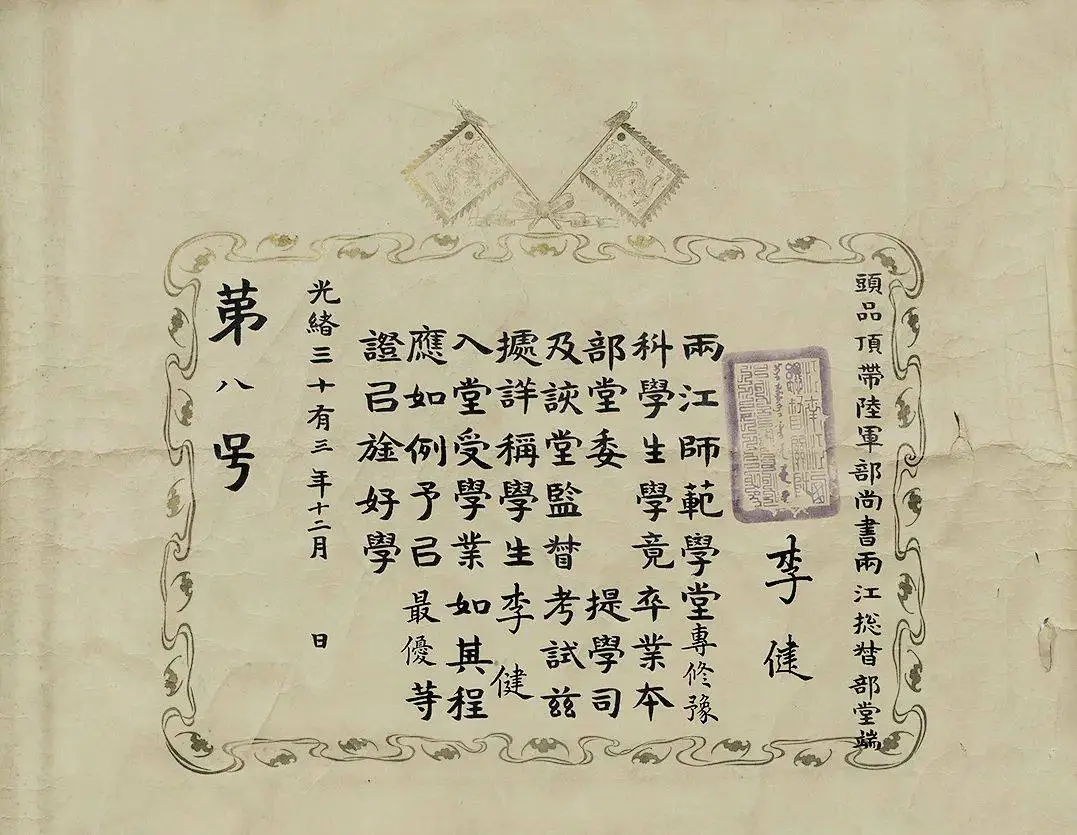 頭品頂帶陸軍部尚書兩江総督部堂端
李健
兩江師範學堂專修豫
科學生學竟卒業本
部堂委 提學司
及該堂監督考試茲
據詳稱學生李健
入堂受學業如其程
應如例予㠯最優等
證㠯旌好學
光緒三十有三年十二月 日
苐八号